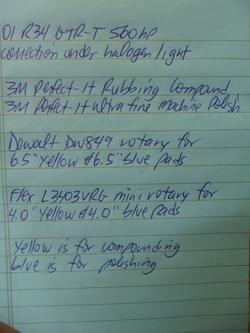 01 R34 GTR-T 560hp
correction under halogen light
3M Perfect-It Rubbing Compound
3M Perfect-It ultrafine Machine Polish
Dewalt DW849 rotary for
6.5" Yellow & 6.5" blue pads
Flex L3403VRG mini rotary for
4.0" Yellow & 4.0" blue pads
Yellow is for compounding
blue is for polishing